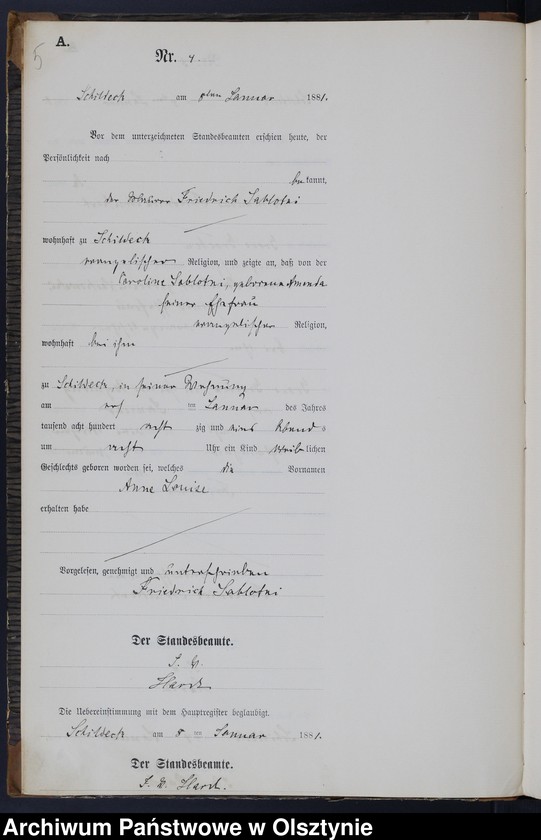 5
A.
Nr. 4.
Schildeck am 8ten Januar 1881.
Vor dem unterzeichneten Standesbeamten erschien heute, der
Persönlichkeit nach
bekannt,
der Friedrich Sablotni
wohnhaft zu Schildeck
evangelischer Religion, und zeigte an, daß von der
Caroline Sablotni, geborene Amenda
seiner Ehefrau
evangelischer Religion,
wohnhaft bei ihm
zu Schildeck, in seiner Wohnung
am Januar des Jahres
tausend acht hundert acht zig und eins Abends
um acht Uhr ein Kind weiblichen
Geschlechts geboren worden sei, welches die Vornamen
Anne Louise
erhalten habe
Vorgelesen, genehmigt und unterschrieben
Friedrich Sablotni
Der Standesbeamte.
Die Uebereinstimmung mit dem Hauptregister beglaubigt.
Schildeck am 8 ten Januar 1881.
Der Standesbeamte.
Archiwum Państwowe w Olsztynie